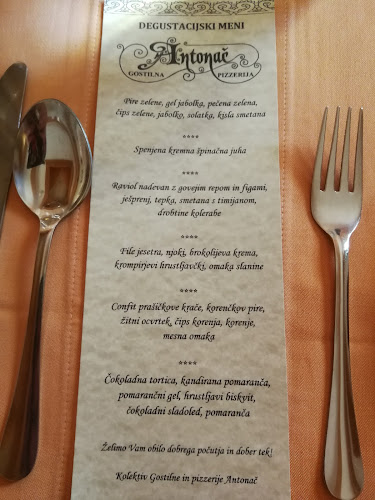 DEGUSTACIJSKI MENI
Antonač
GOSTILNA PIZZERIJA
Pire zelene, gel jabolko, pečena zelena,
čips zelene, jabolko, solatka, kisla smetana
****
Spenjena kremna špinačna juha
****
Raviol nadevan z govejim repom in figami,
ješprenj, tepka, smetana s timijanom,
drobtine kolerabe
****
File jesetra, njoki, brokolijeva krema,
krompirjevi hrustljavčki, omaka slanine
****
Confit prašičkove krače, korenčkov pire,
žitni ocvrtek, čips korenja, korenje,
mesna omaka
****
Čokoladna tortica, kandirana pomaranča,
pomarančni gel, hrustljavi biskvit,
čokoladni sladoled, pomaranča
Želimo Vam obilo dobrega počutja in dober tek!
Kolektiv Gostilne in pizzerije Antonač